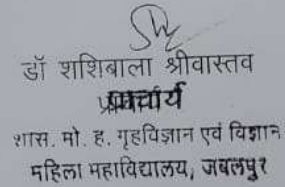 डॉ शशिबाला श्रीवास्तव
प्राचार्य
शास. मो. ह. गृहविज्ञान एवं विज्ञान
महिला महाविद्यालय, जबलपुर